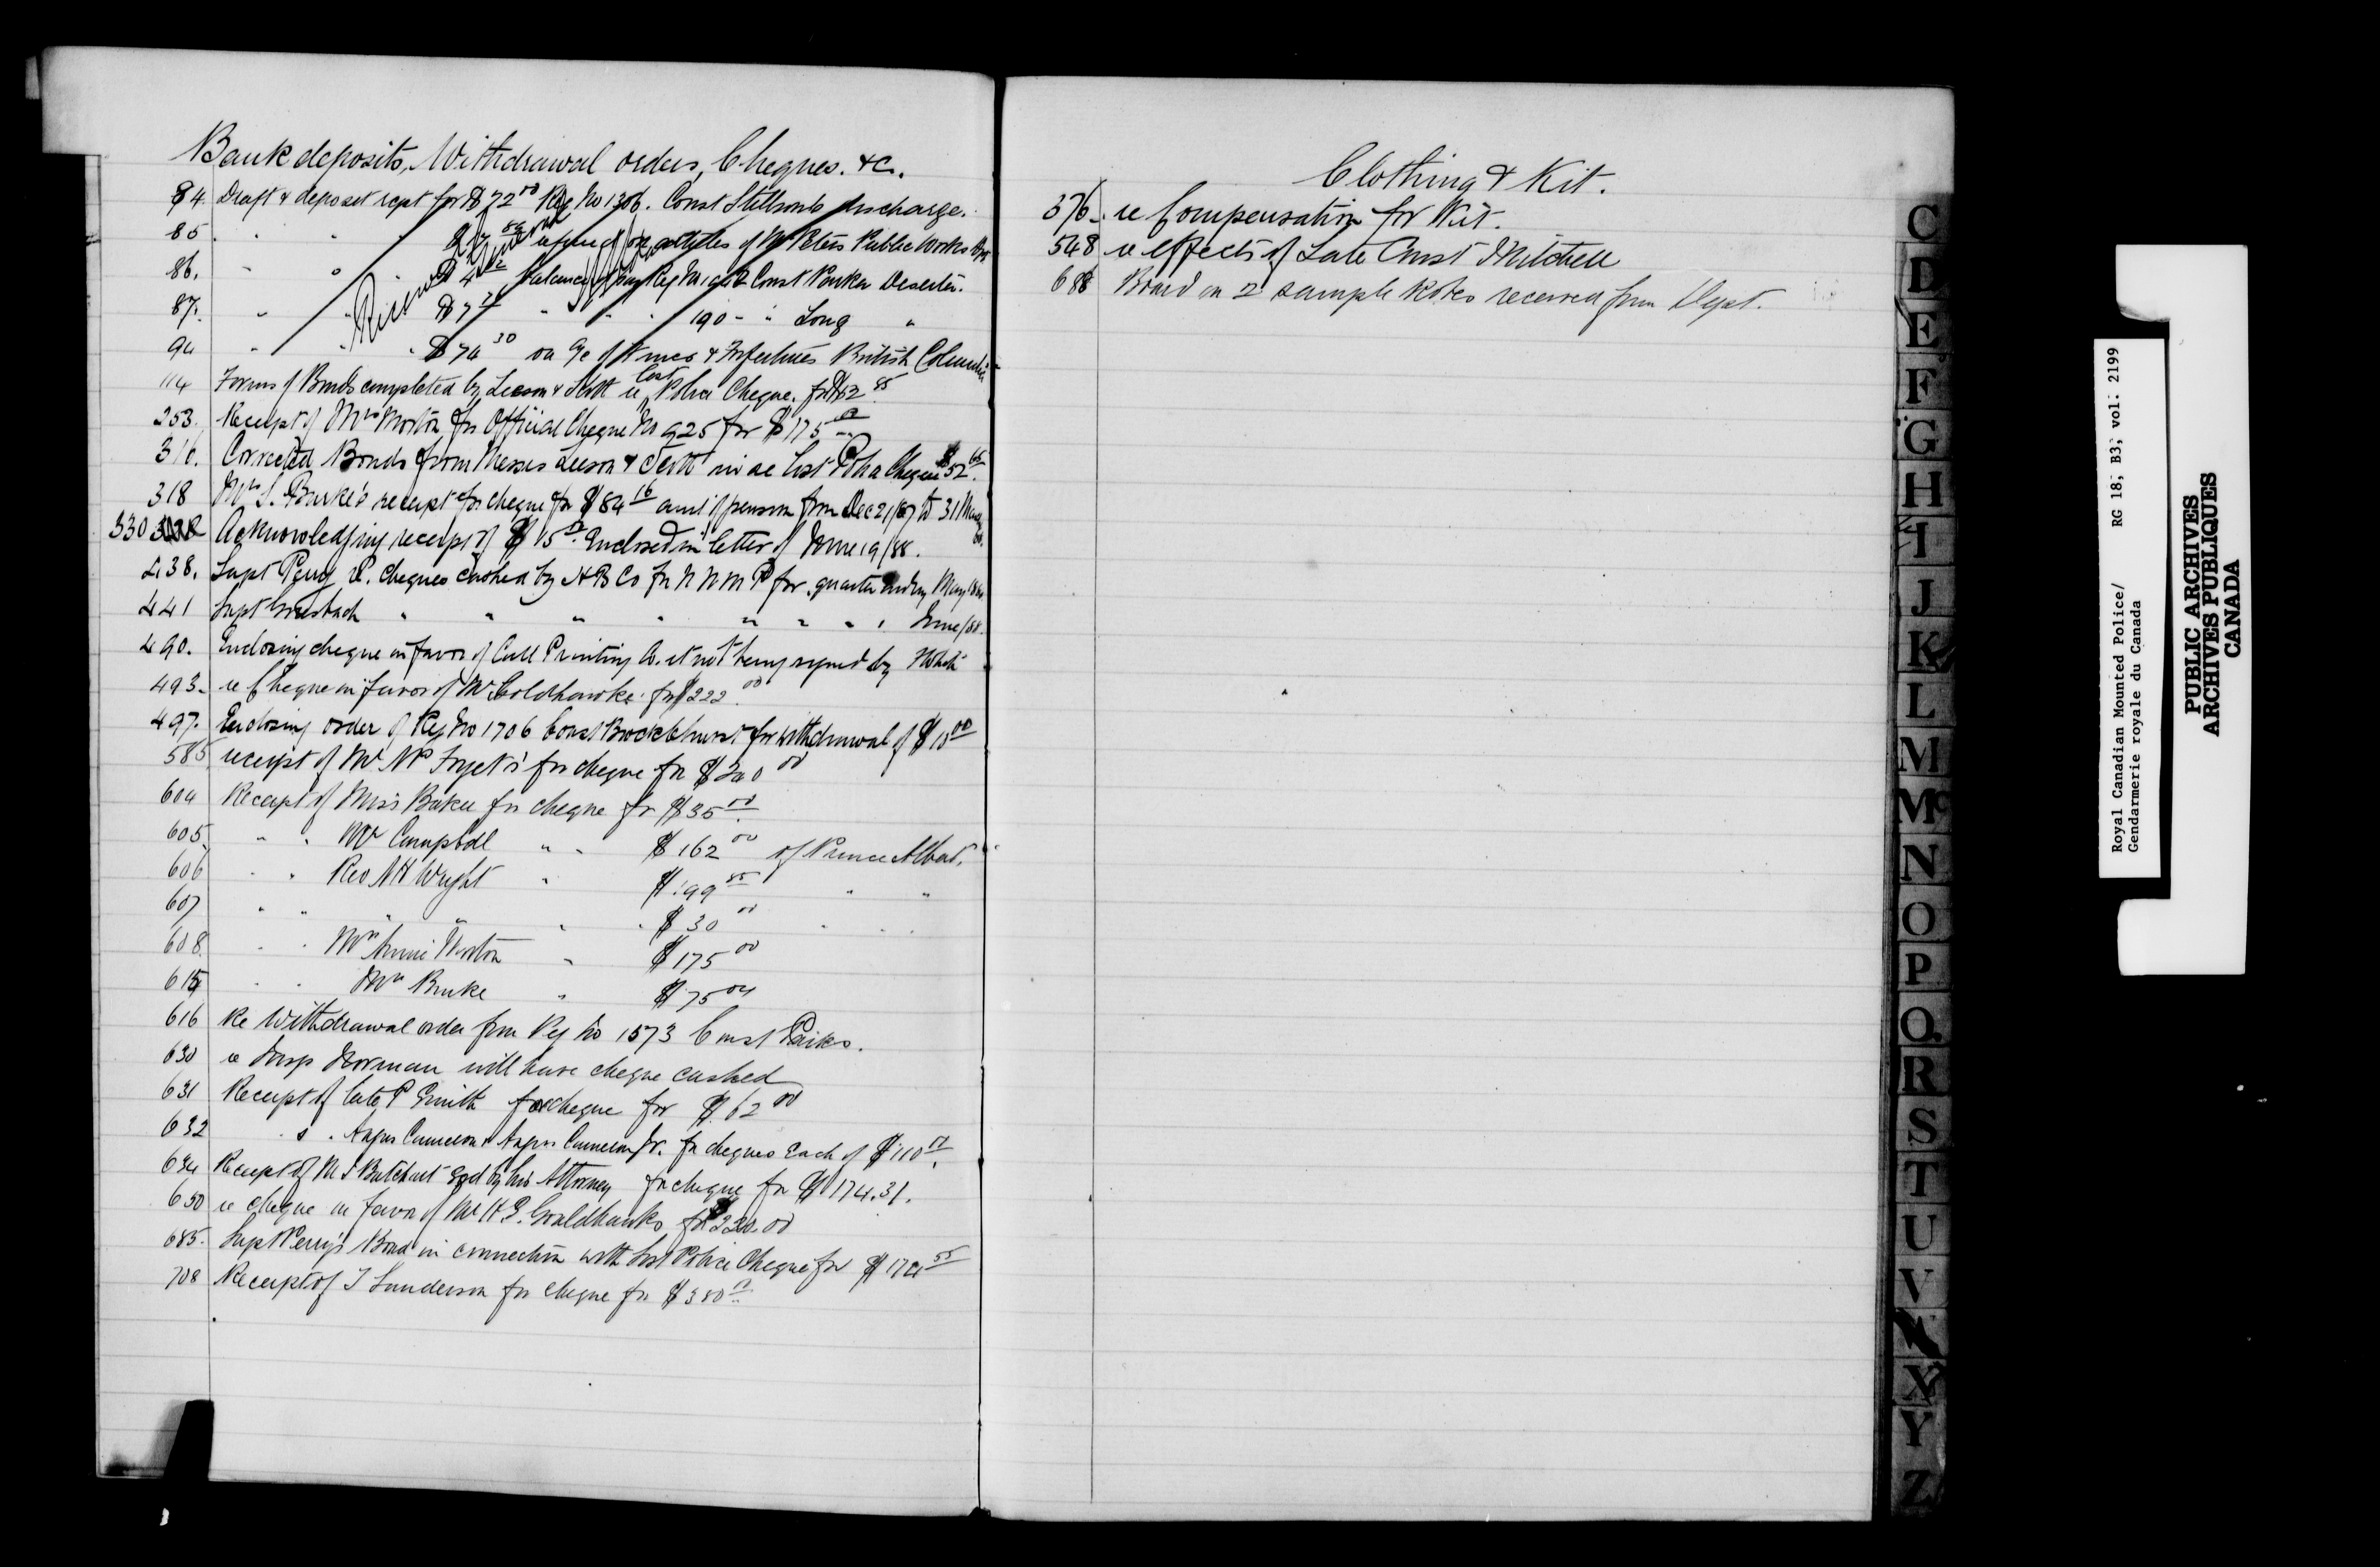 Bank deposits, Withdrawal orders, Cheques. &c.
84. Draft & deposit rept for $72 00 Reg No 1306. Const Stillsons discharge.
85 " " " refund on of Mr Peters Public Works Dept
86. " " " $4 12 balance of pay Reg No Const Parker Deserter.
87. " " " $7 " " " 190 " " Long "
94 " " " $74 30 on % of Fines & Forfeitures British Columbia
114 Forms of Bonds completed by Leeson & Scott re lost Police Cheque. for
253. Receipt of Mrs Morton for Official Cheque No 925 for $175 00
316. Corrected Bonds from Messrs Leeson & Scott in re lost Police Cheque $52
318 Mrs L. Burke's receipt for cheque for $84 16 amt of pension from Dec 21/87 to 31 May
330 Acknowledging receipt of $15 00. Enclosed in letter of June 19/88.
438. Supt Perry re. cheques cashed by H B Co for N W M P for quarter ending May 1888
441 Supt Griesbach " " " " " " " " June/88.
490. Enclosing cheque in favor of Call Printing Co. it not being signed by
493. re Cheque in favor of Mr Goldhawke for $222. 00
497. Enclosing order of Reg No 1706 Const Brocklehurst for withdrawal of $10 00
585 receipt of Mr Forget's for cheque for 00
604 Receipt of Miss Baker for cheque for $35 00.
605. " " Mr Campbell " " $162 00 of Prince Albert.
606 " " Rev Wright " $199 85 " "
607 " " " " " " $30 00 " " "
608. " " Mrs Annie Morton " $175 00
615 " " Mrs Burke " $75 04
616 Re Withdrawal order from Reg No 1573 Const Pairks.
630 re Insp Norman will have cheque cashed
631 Receipt of late P Smith for cheque for $62 00
632 " " Angus Cameron & Angus Cameron Jr. for cheques each of $110 00.
634 Receipt of by his Attorney for cheque for $174.31.
650 re cheque in favor of Mr H E. Gouldhawke for $220.00
685. Supt Perry's Bond in connection with lost Police Cheque for
708 Receipt of J Sanderson for cheque for $380 00
Clothing & Kit.
376. re Compensation for Kit.
548 re effects of Late Const Mitchell
688 Board on 2 sample Robes received from Dept.
C
D
E
F
G
H
I
J
K
L
M
Mc
N
O
P
Q
R
S
T
U
V
X
Y
Z
Royal Canadian Mounted Police/ RG 18, B3, vol: 2199
Gendarmerie royale du Canada
PUBLIC ARCHIVES
ARCHIVES PUBLIQUES
CANADA